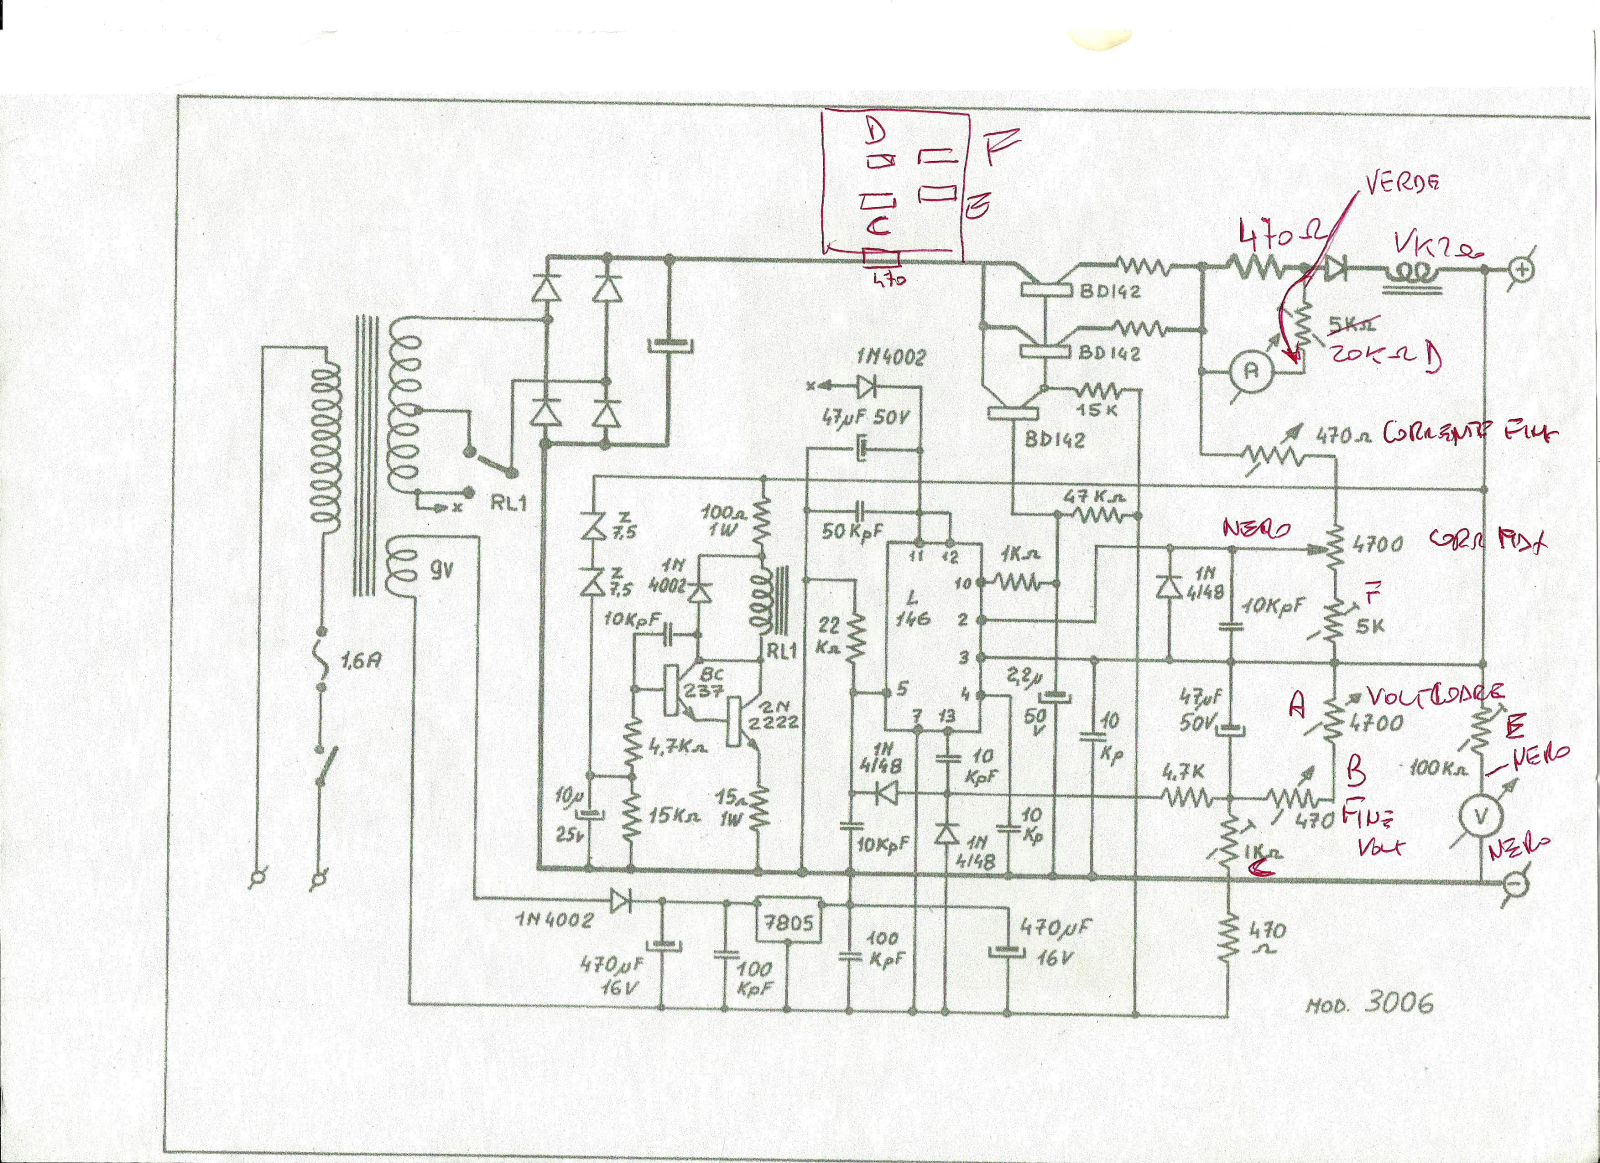 D
F
E
C
470
VERDE
470Ω
VK20
+
BD142
BD142
BD142
A
5KΩ
20KΩ D
15K
1N4002
x
47µF 50V
470Ω CORRENTE FINE
RL1
x
9V
1,6A
Z
7,5
Z
7,5
100Ω
1W
50KpF
47KΩ
NERO
4700
11 12
1KΩ
10
2
3
4
5
7 13
L
146
1N
4002
10KpF
22
KΩ
RL1
1N
4148
10KpF
F
5K
BC
237
2N
2222
2,2µ
50
V
10
Kp
47µF
50V
A
VOLT
4700
E
NERO
100KΩ
V
NERO
4,7KΩ
1N
4148
10
KpF
4,7K
B
470
FINE
VOLT
10µ
25V
15KΩ
15Ω
1W
10KpF
1N
4148
10
Kp
1KΩ
C
-
1N4002
7805
470µF
16V
100
KpF
100
KpF
470µF
16V
470
Ω
MOD. 3006